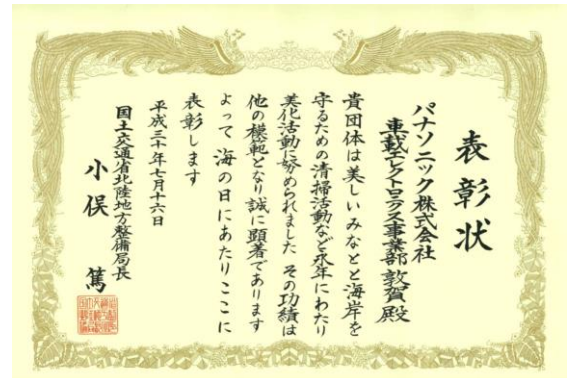 表彰状
パナソニック株式会社
車載エレクトロニクス事業部 敦賀 殿
貴団体は美しいみなとと海岸を
守るための清掃活動など永年にわたり
美化活動に努められました その功績は
他の模範となり誠に顕著であります
よって 海の日にあたりここに
表彰します
平成三十年七月十六日
国土交通省北陸地方整備局長
小俣 篤